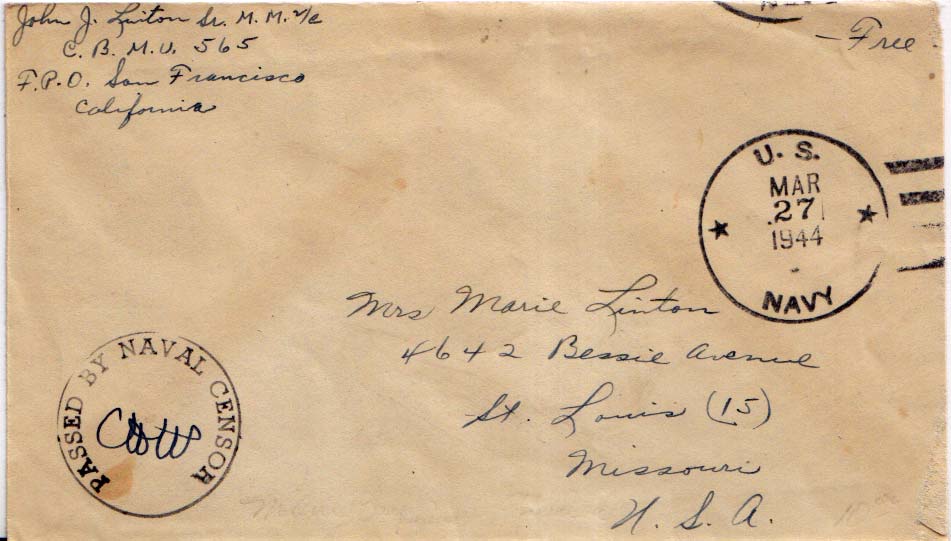 John J. Linton Sr. M.M. 2/c
C. B. M. U. 565
F.P.O. San Francisco
California
– Free
U. S.
MAR
27
1944
NAVY
Mrs Marie Linton
4642 Bessie Avenue
St. Louis (15)
Missouri
U. S. A.
PASSED BY NAVAL CENSOR